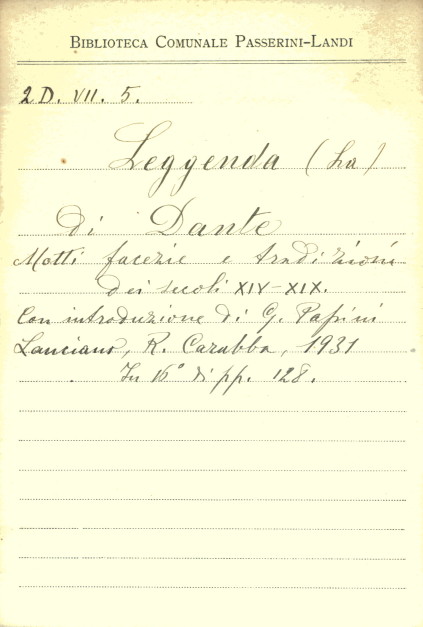 BIBLIOTECA COMUNALE PASSERINI-LANDI
2 D. VII. 5.
Leggenda (La)
di Dante
Motti facezie e tradizioni
dei secoli XIV-XIX.
Con introduzione di G. Papini
Lanciano, R. Carabba, 1931
In 16° di pp. 128.